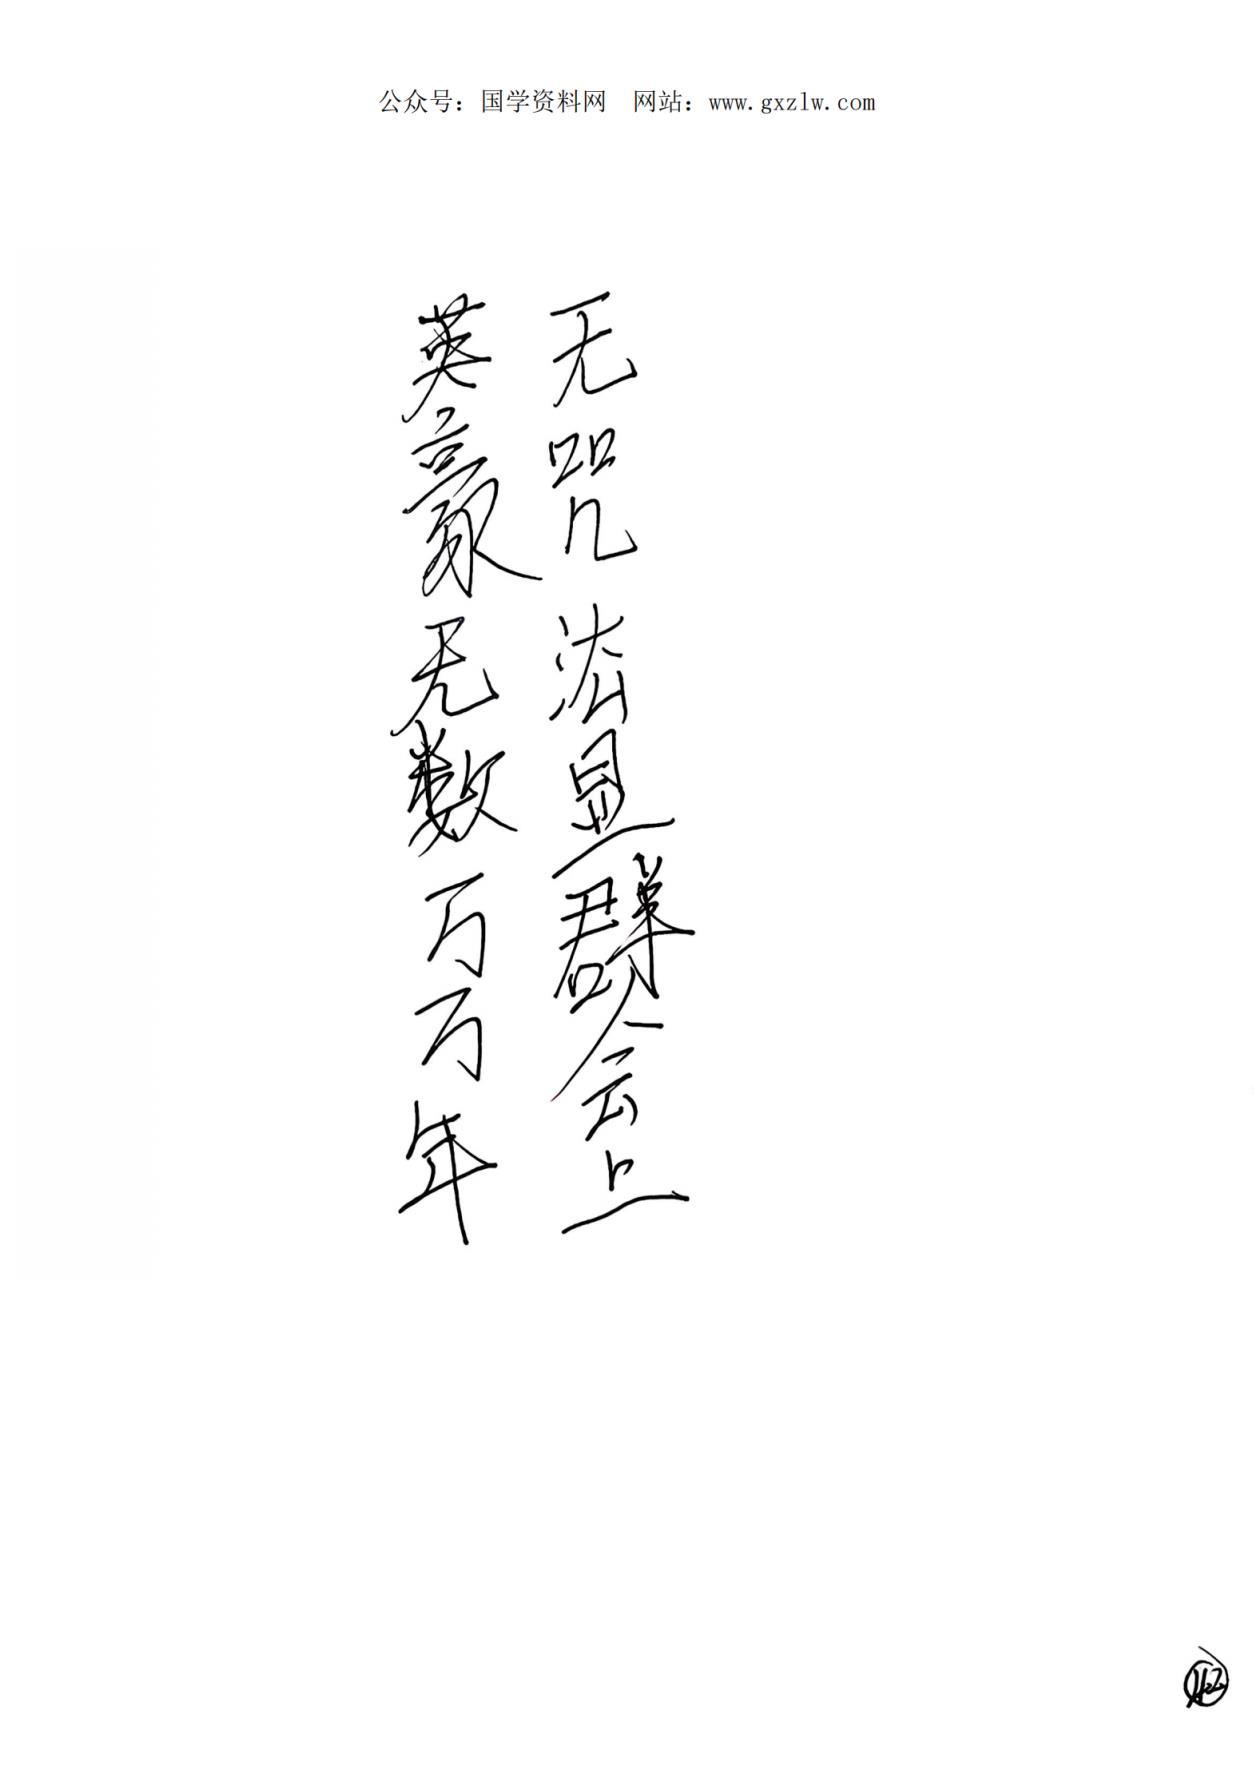 公众号：国学资料网 网站：www.gxzlw.com
无咒法显群会上
英豪无数万万年